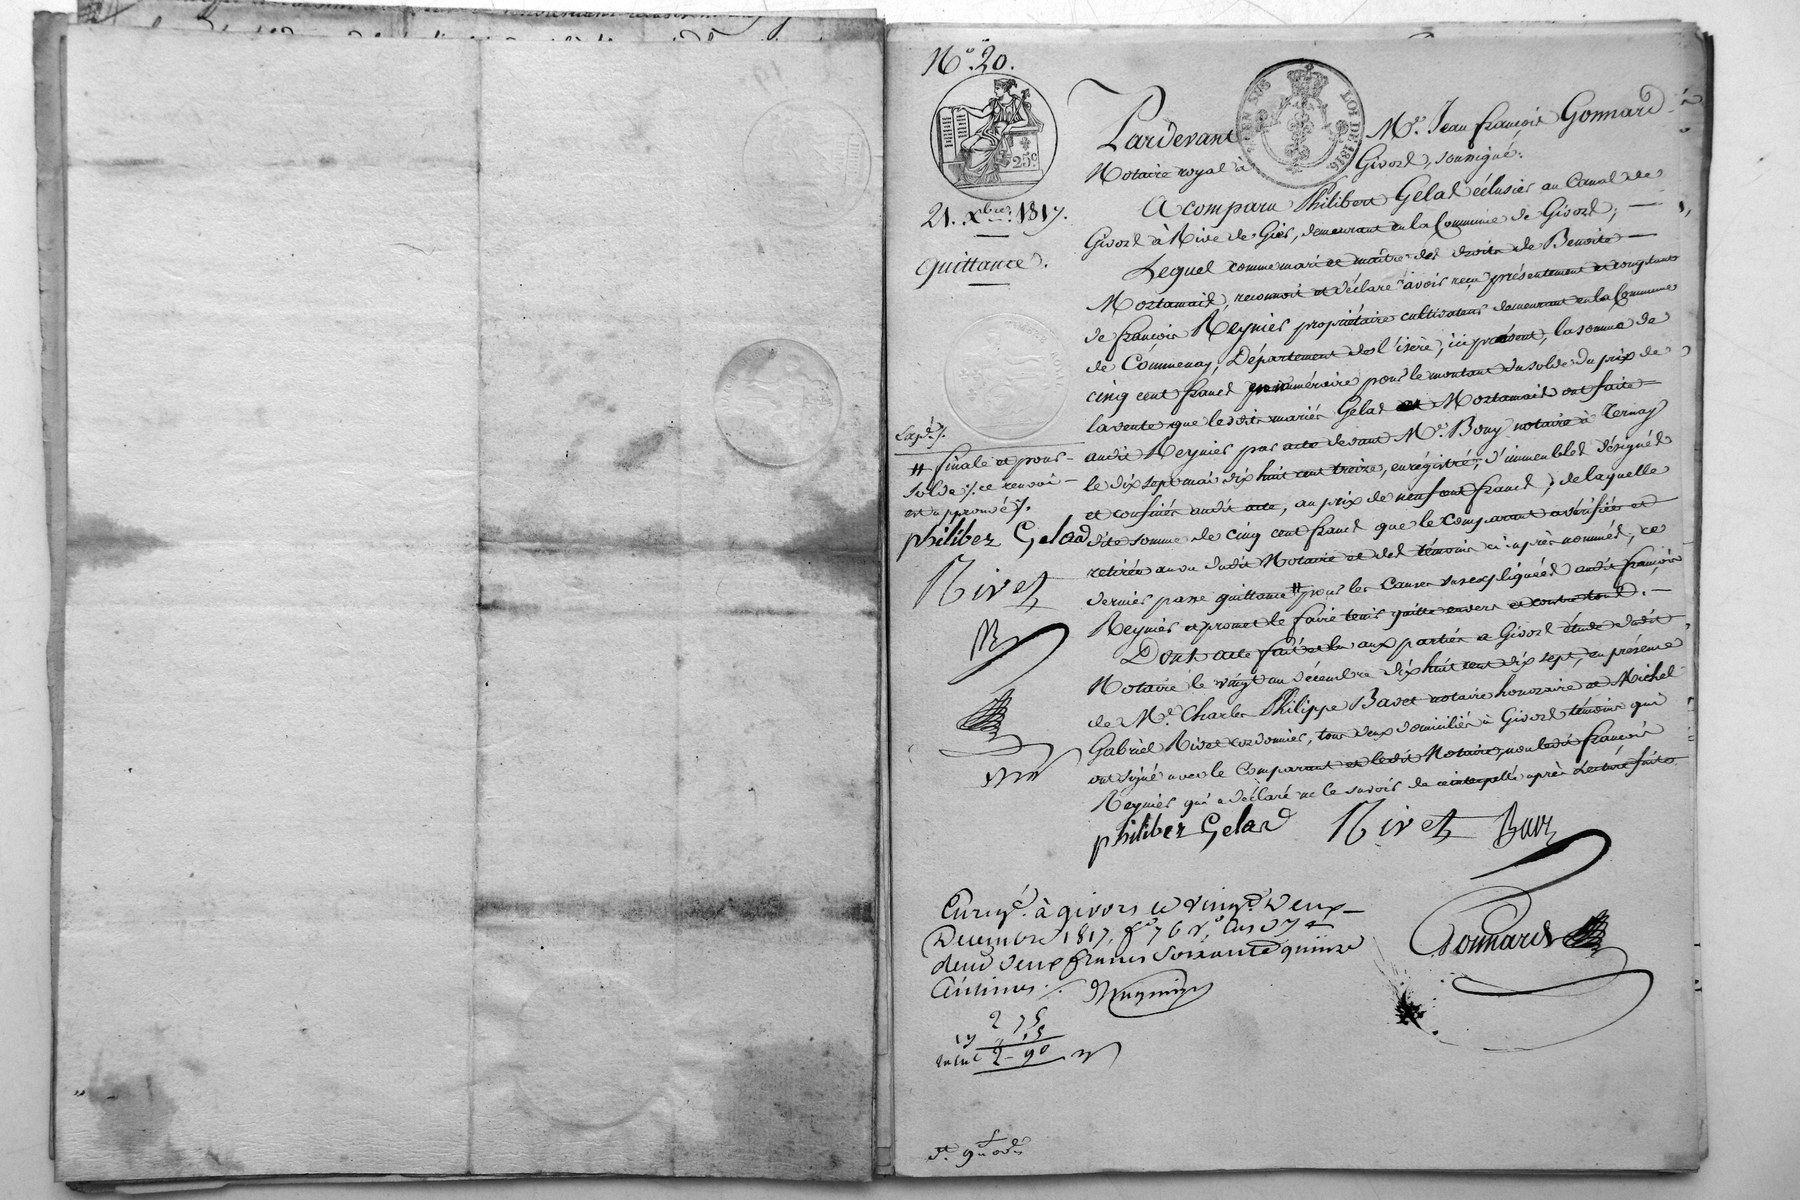 N.º 20.
25.c
TIMB. EN SUS
LOI DE 1816
21. Xbre. 1817.
Quittance.
Pardevant Me. Jean françois Gonnard
Notaire royal à Givors, soussigné;
A comparu Philibert Gelas éclusier au Canal de
Givors à Rive de Gier, demeurant en la Commune de Givors;
Lequel comme mari et maître des droits de Benoite
Mortamais, reconnoit et déclare avoir reçu présentement et comptant
de françois Reynier propriétaire cultivateur demeurant en la Commune
de Communay, Département de l'isère, ici présent, la somme de
cinq cent francs en numéraire pour le montant du solde du prix de
la vente que lesdits mariés Gelas et Mortamais ont faite
audit Reynier par acte devant Me. Bouy notaire à Ternay
le dix sept mai dix huit cent treize, enregistré, d'immeubles désignés
et confinés audit acte, au prix de neuf cent francs; de laquelle
dite somme de cinq cent francs que le comparant a vérifiée et
retirée au vu dudit Notaire et des témoins ci après nommés, ce
dernier passe quittance # pour les causes susexpliquées audit françois
Reynier et promet le faire tenir quitte envers et contre tous.
Dont acte fait et lu aux parties à Givors étude dudit
Notaire le vingt un décembre dix huit cent dix sept, en présence
de Me. Charles Philippe Bavet notaire honoraire et Michel
Gabriel Rivet cordonnier, tous deux domiciliés à Givors témoins qui
ont signé avec le comparant et ledit Notaire, non ledit françois
Reynier qui a déclaré ne le savoir de ce interpellé après lecture faite
# finale et pour
solde ce renvoi
est approuvé
philiber Gelas
Rivet
philiber Gelas Rivet
Gonnard
Enregé. à givors le vingt deux
Décembre 1817, fo. 76 Vo. Cas 3 7 et
deux francs soixante quinze
Centimes
2 75
2 90